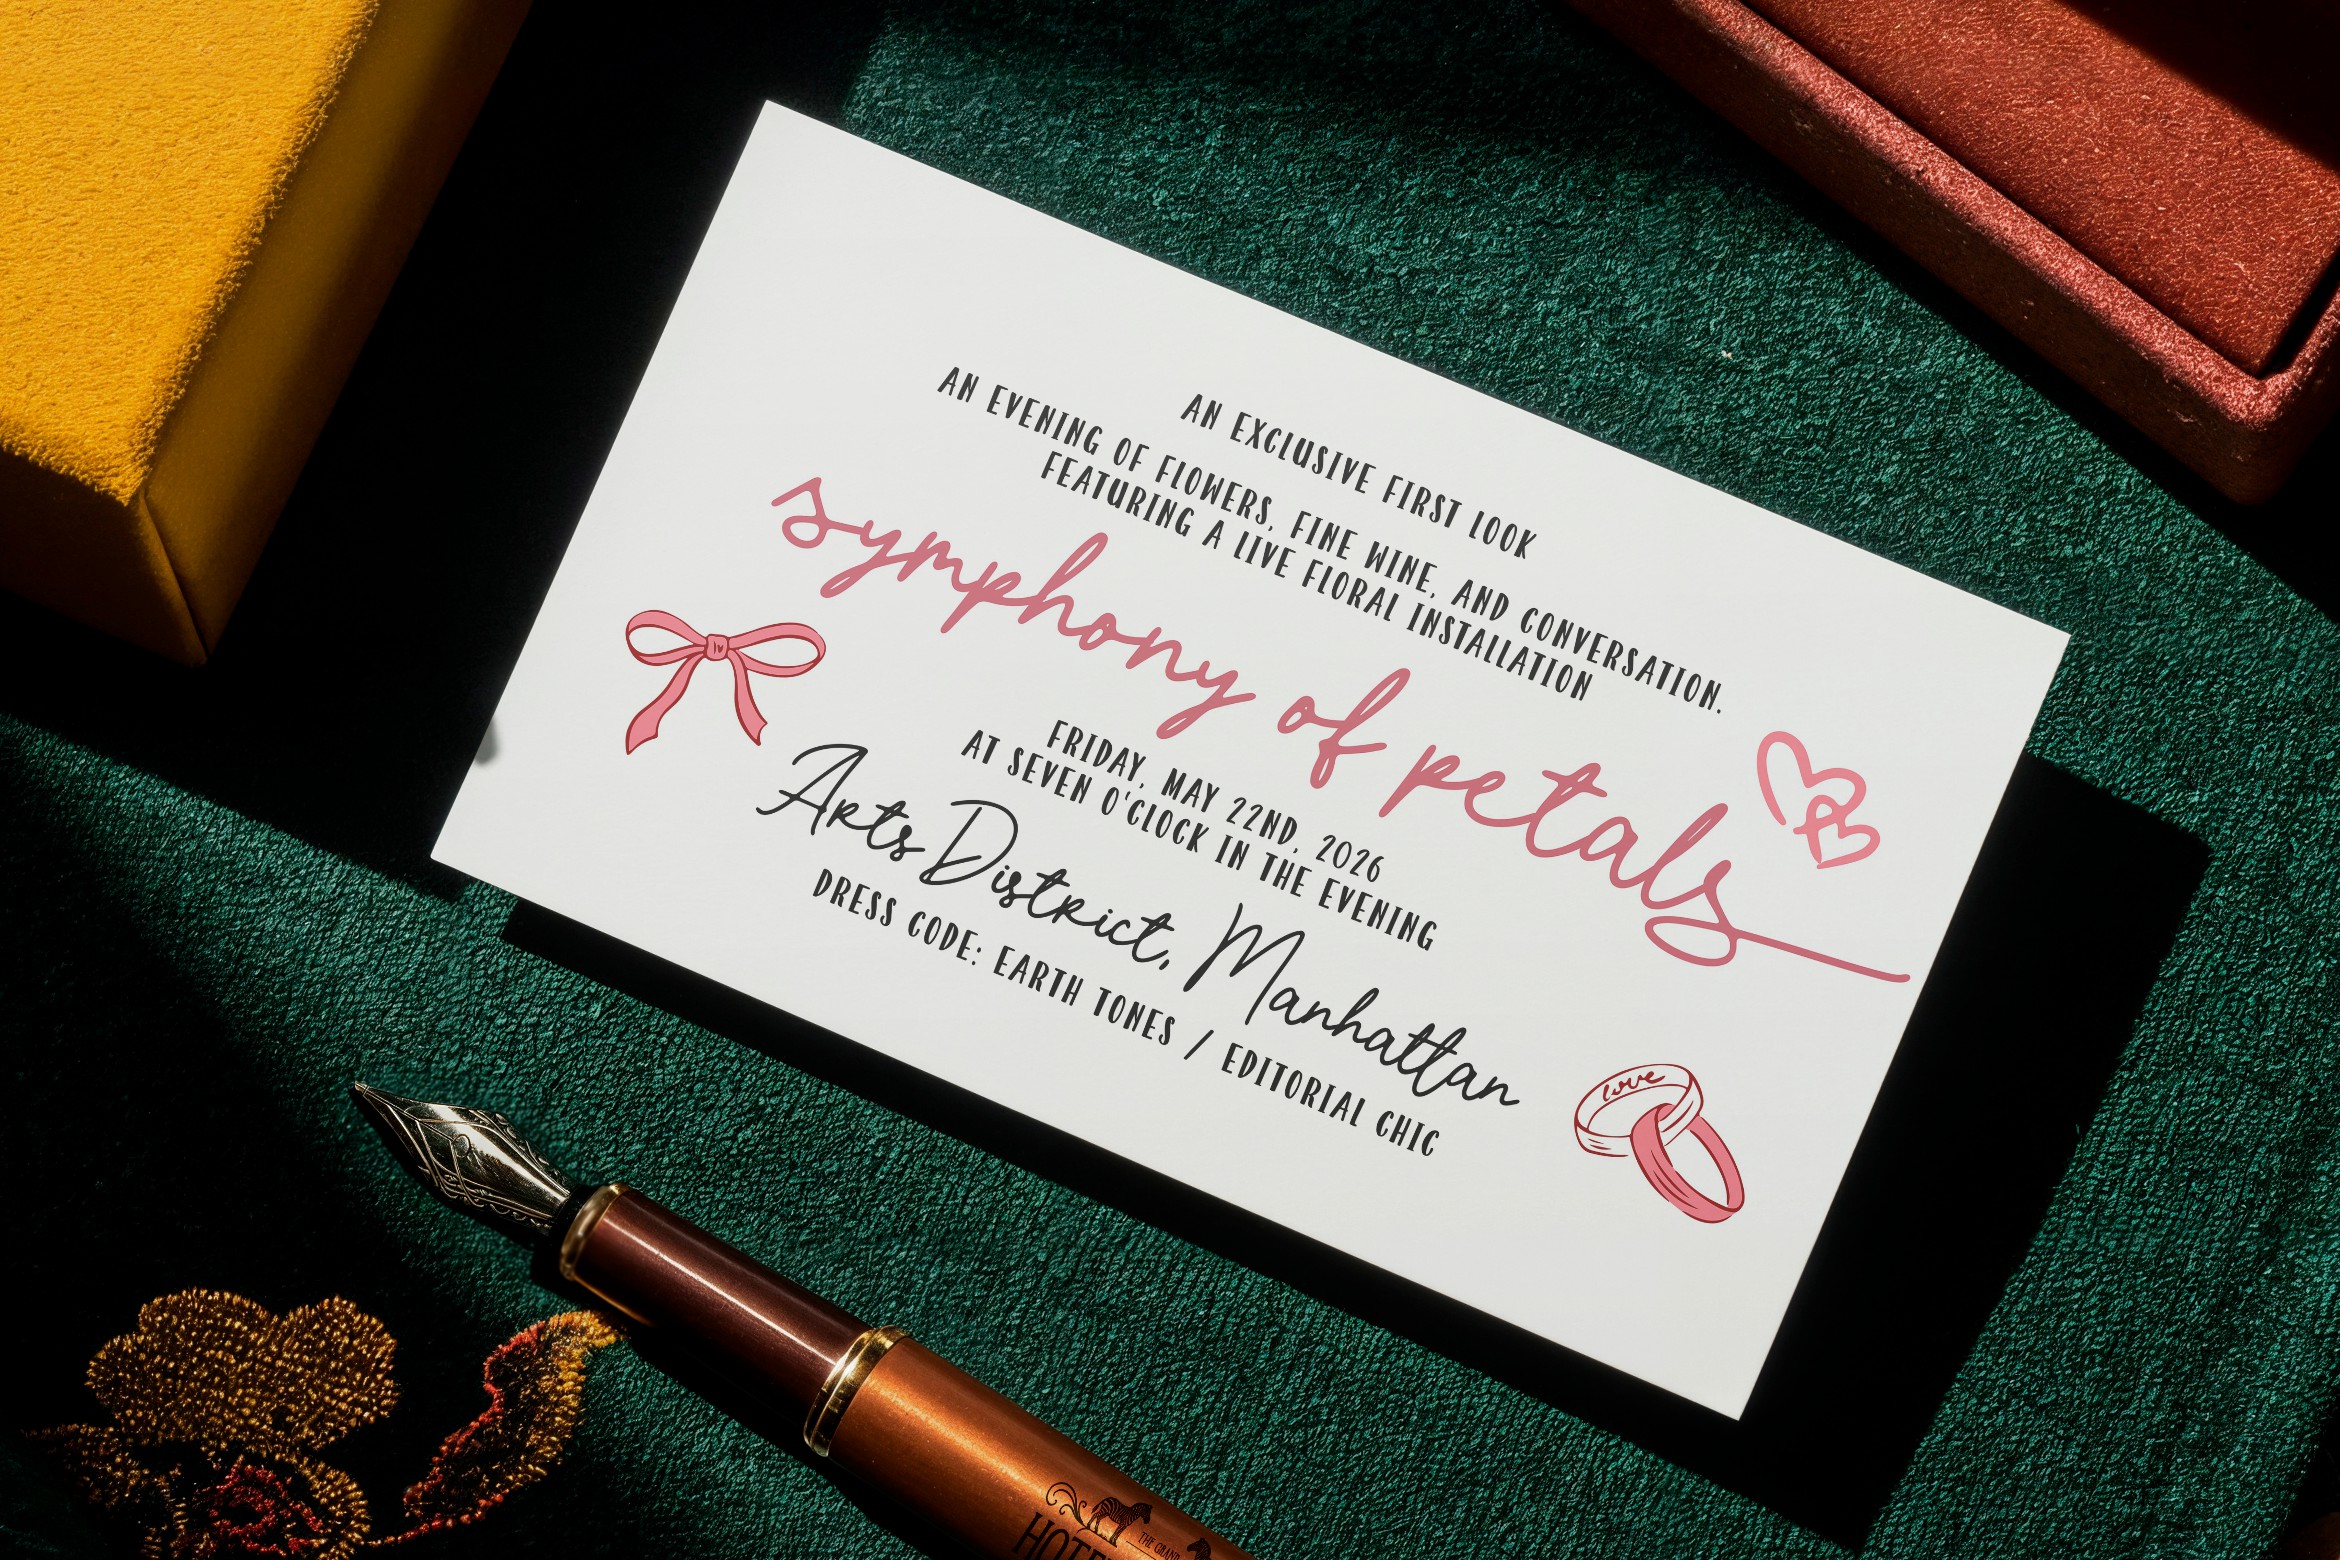 AN EXCLUSIVE FIRST LOOK
AN EVENING OF FLOWERS, FINE WINE, AND CONVERSATION.
FEATURING A LIVE FLORAL INSTALLATION
symphony of petals
FRIDAY, MAY 22ND, 2026
AT SEVEN O'CLOCK IN THE EVENING
Arts District, Manhattan
DRESS CODE: EARTH TONES / EDITORIAL CHIC
love
THE GRAND